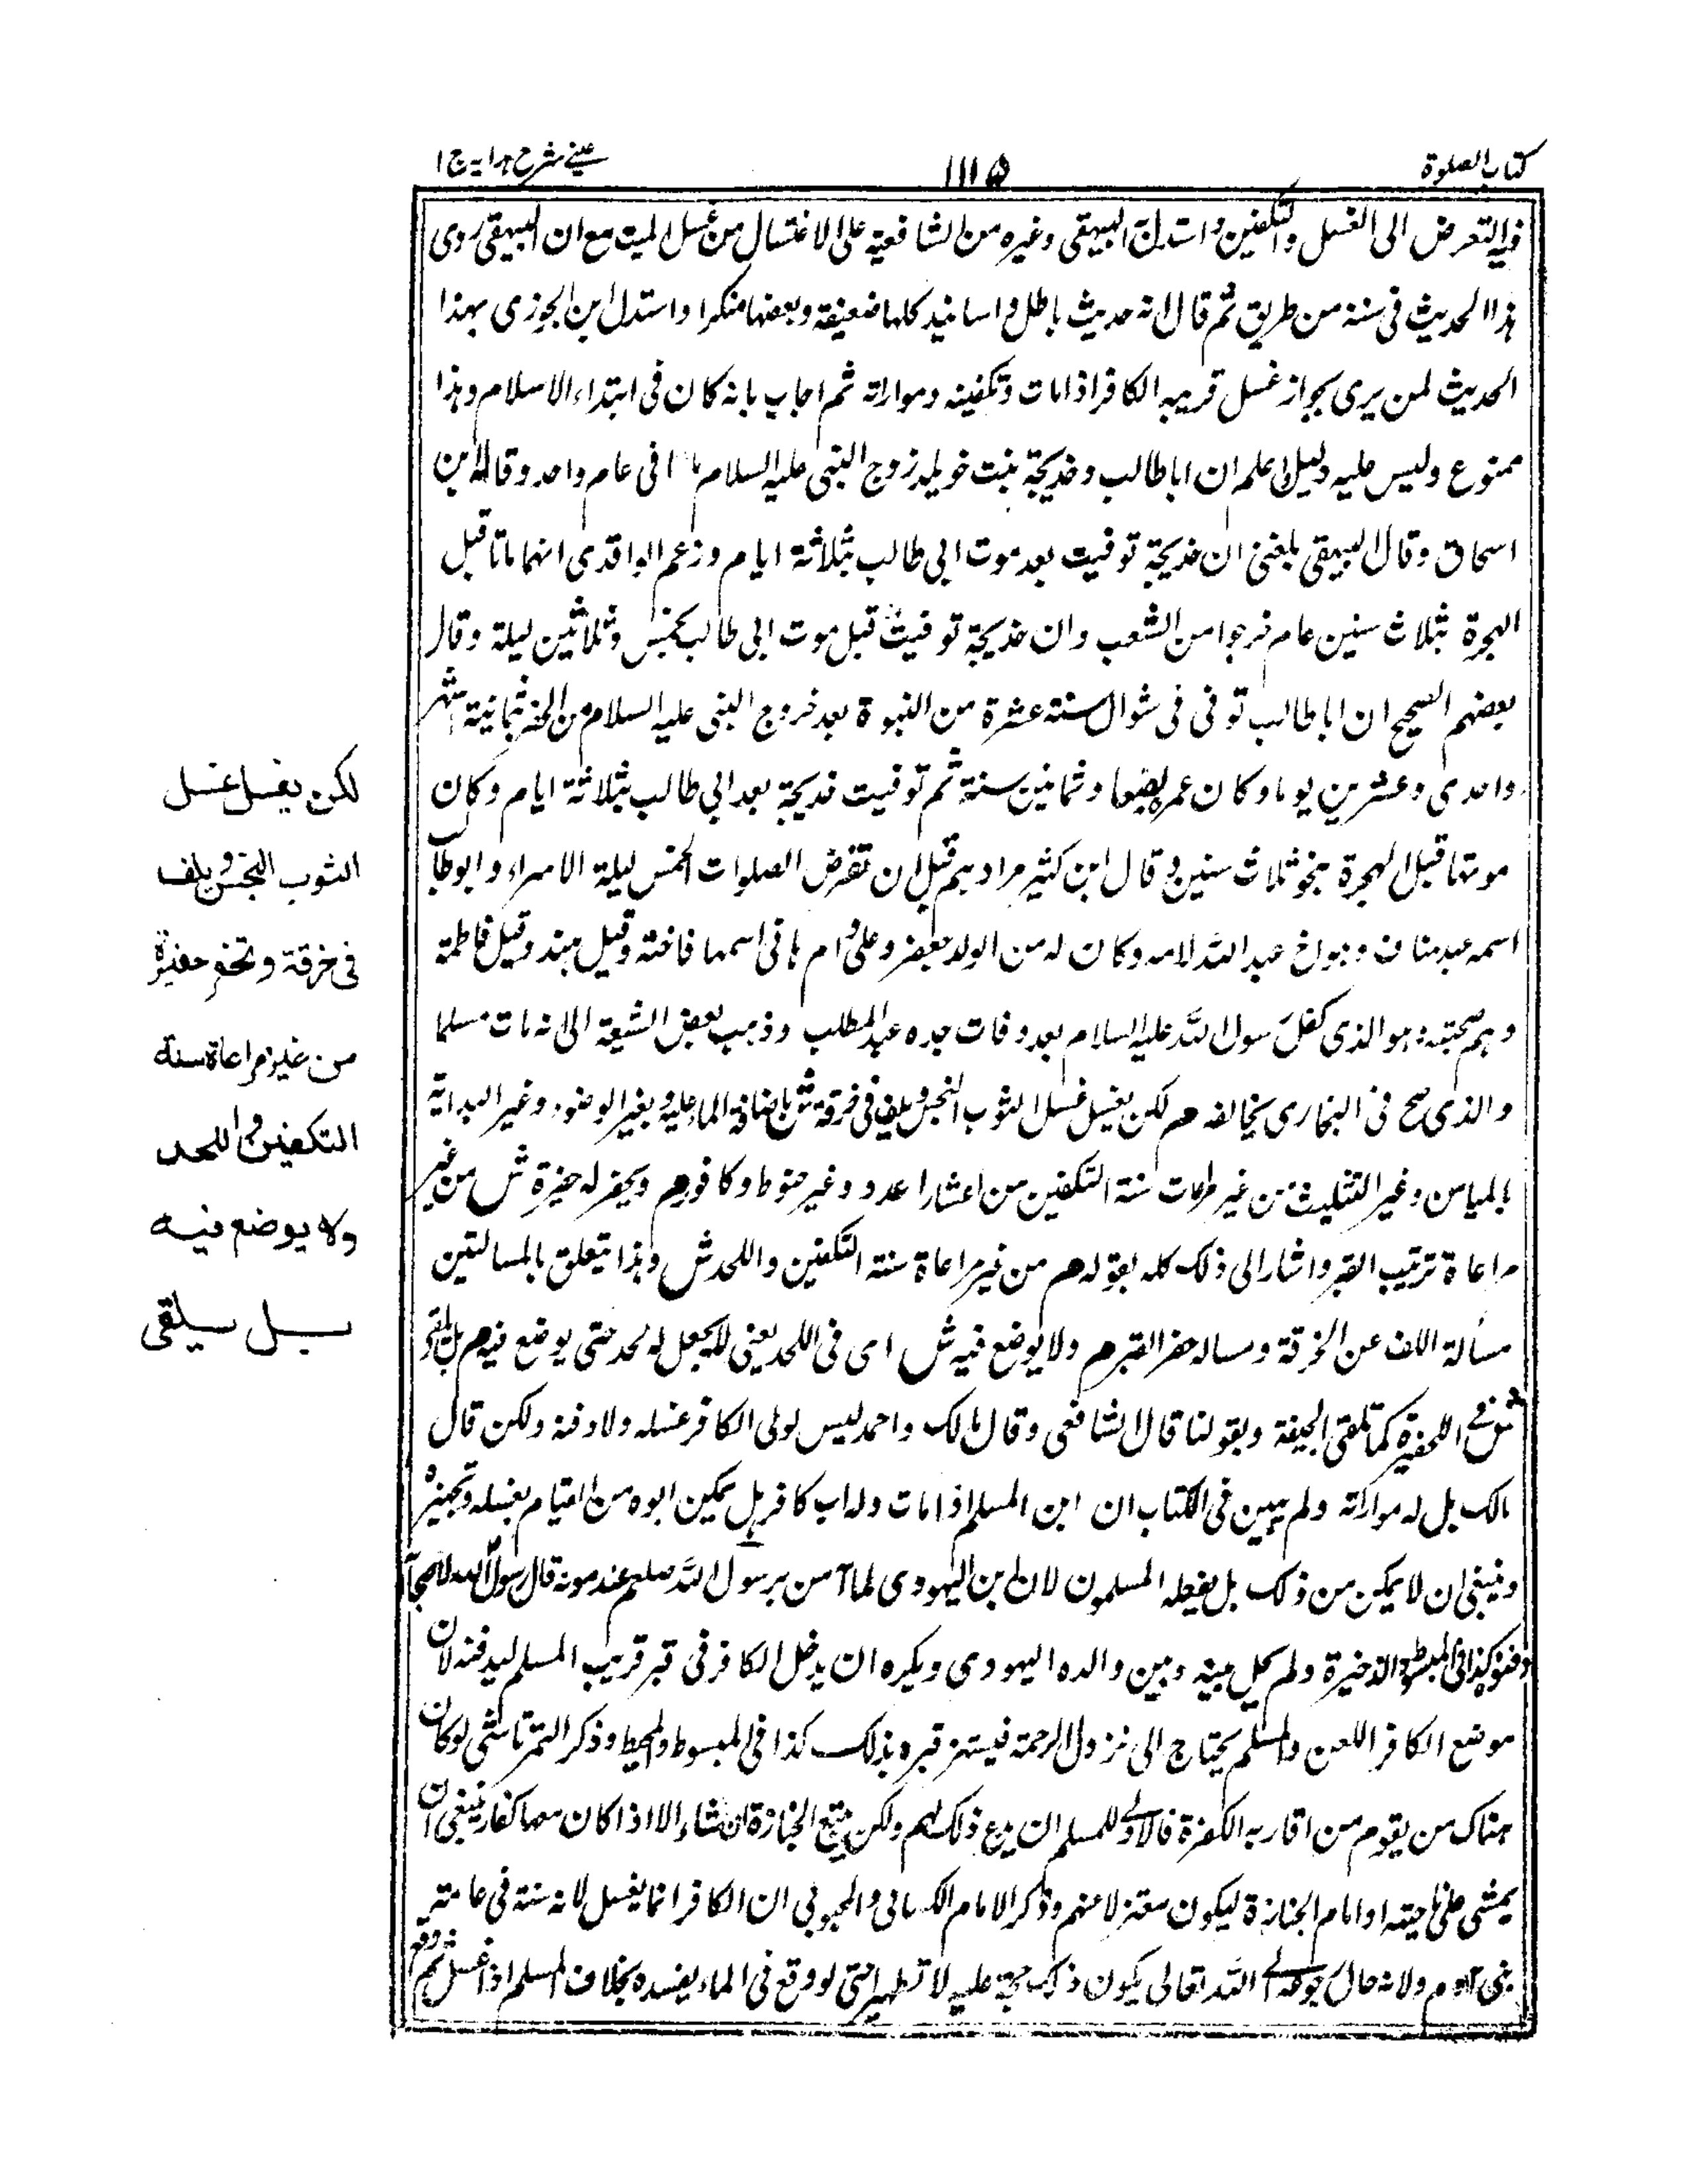 كتاب الصلوة
١١١٥
عينى شرح هدايه ج ١
فيه التعرض الى الغسل والتكفين واستدل البيهقى وغيره من الشافعية على الاغتسال من غسل الميت مع ان البيهقى روى
هذا الحديث فى سننه من طريق ثم قال انه حديث باطل واسانيد كلها ضعيفة وبعضها منكرا واستدل ابن الجوزى بهذا
الحديث لمن يرى بجواز غسل قريبه الكافر اذا مات وتكفينه ومواراته ثم اجاب بانه كان فى ابتداء الاسلام وهذا
ممنوع وليس عليه دليل واعلم ان ابا طالب وخديجة بنت خويلد زوج النبى عليه السلام ماتا فى عام واحد وقاله ابن
اسحاق وقال البيهقى بلغنى ان خديجة توفيت بعد موت ابى طالب بثلاثة ايام وزعم الواقدى انهما ماتا قبل
الهجرة بثلاث سنين عام خرجوا من الشعب وان خديجة توفيت قبل موت ابى طالب بخمس وثلاثين ليلة وقال
بعضهم الصحيح ان ابا طالب توفى فى شوال سنة عشرة من النبوة بعد خروج النبى عليه السلام من الحصر ثمانية اشهر
واحدى وعشرين يوما وكان عمره بضعا وثمانين سنة ثم توفيت خديجة بعد ابى طالب بثلاثة ايام وكان
موتها قبل الهجرة بنحو ثلاث سنين وقال ابن كثير مرادهم قبل ان تفرض الصلوات الخمس ليلة الاسراء وابو طالب
اسمه عبد مناف وهو اخ عبد الله لامه وكان له من الولد جعفر وعلى وام هانى اسمها فاختة وقيل هند وقيل فاطمة
ولهم صحبته وهو الذى كفل رسول الله عليه السلام بعد وفات جده عبد المطلب وذهب بعض الشيعة الى انه مات مسلما
والذى صح فى البخارى يخالفه م لكن يغسل غسل الثوب النجس ويلف فى خرقة ش باضافة الماء عليه وبغير الوضوء وغير البداية
بالميامن وغير التثليث من غير مراعات سنة التكفين من اعتبار عدد وغير حنوط وكافور م ويحفر له حفيرة ش من غير
مراعاة ترتيب القبر واشار الى ذلك كله بقوله م من غير مراعاة سنة التكفين واللحد ش وهذا يتعلق بالمسالتين
مسألة اللف عن الخرقة ومسالة حفر القبر م ولا يوضع فيه ش اى فى اللحد يعنى لا يجعل له لحد حتى يوضع فيه م بل يلقى
ش فى الحفيرة كما تلقى الجيفة وبقولنا قال الشافعى وقال مالك واحمد ليس لولى الكافر غسله ولا دفنه ولكن قال
مالك بل له مواراته ولم يبين فى الكتاب ان ابن المسلم اذا مات وله اب كافر هل يمكن ابوه من القيام بغسله وتجهيزه
وينبغى ان لا يمكن من ذلك بل يفعله المسلمون لان ابن اليهودى لما آمن برسول الله صلعم عند موته قال رسول الله لاصحابه
ادفنوه كذا فى المبسوط والذخيرة ولم يخل بينه وبين والده اليهودى ويكره ان يدخل الكافر فى قبر قريب المسلم ليدفنه لان
موضع الكافر اللعن والمسلم يحتاج الى نزول الرحمة فيستنزه قبره بذلك كذا فى المبسوط والمحيط وذكر التمرتاشى لو كان
هناك من يقوم من اقاربه الكفرة فالاولى للمسلم ان يدع ذلك لهم ولكن يتبع الجنازة ان شاء الا اذا كان معها كفار ينبغى ان
يمشى على ناحيته او امام الجنازة ليكون معتزلا عنهم وذكر الامام الكسانى والمحبوبى ان الكافر انما يغسل لانه سنة فى عامة
بنى آدم ولانه حال رجوعه الى الله تعالى يكون ذلك حجة عليه لا تطهيرا حتى لو وقع فى الماء يفسده بخلاف المسلم اذا غسل ثم وقع
لكن يغسل غسل
الثوب النجس ويلف
فى خرقة وتحفر حفيرة
من غير مراعاة سنة
التكفين واللحد
ولا يوضع فيه
بل يلقى